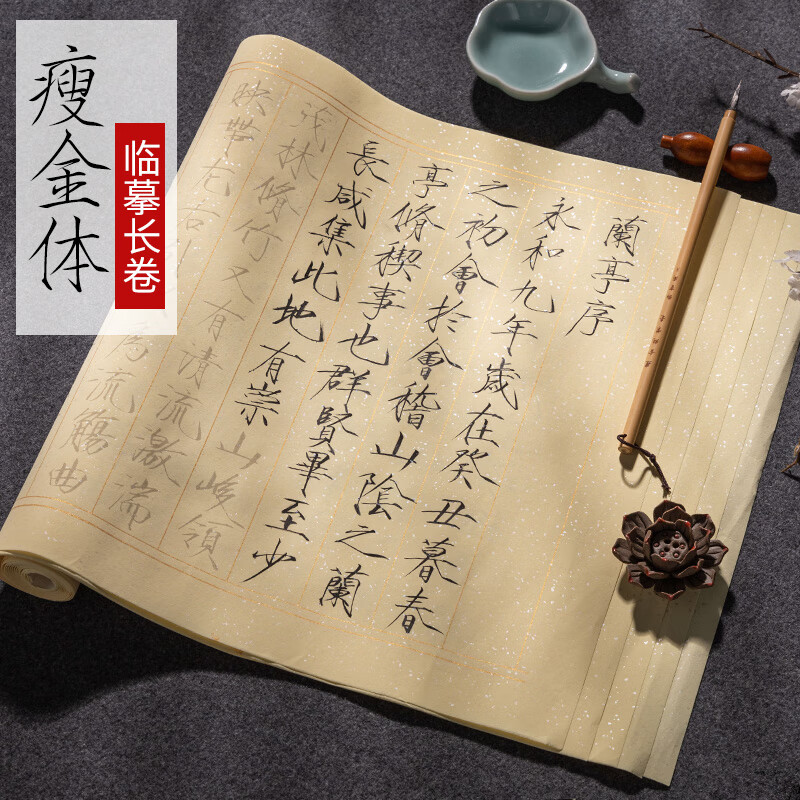 瘦金体
临摹长卷
蘭亭序
永和九年歲在癸丑暮春
之初會扵會稽山陰之蘭
亭脩稧事也群賢畢至少
長咸集此地有崇山峻領
茂林脩竹又有清流激湍
映帶左右為流觴曲